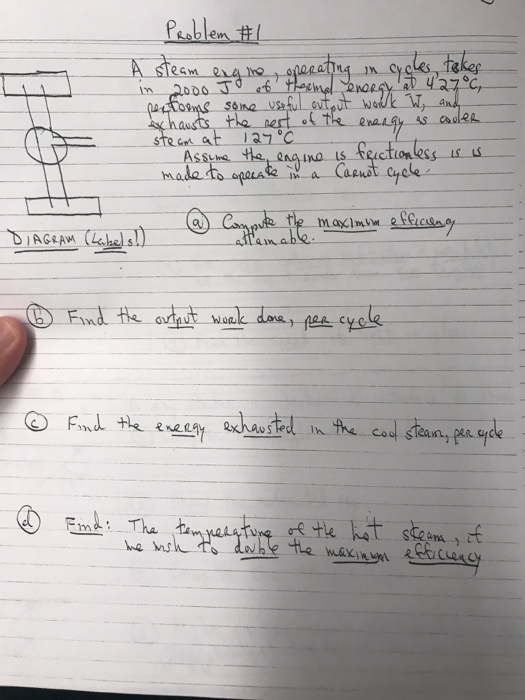 Problem #1
A steam engine, operating in cycles, takes
in 2000 J of thermal energy at 427°C,
performs some useful output work W, and
exhausts the rest of the energy as cooler
steam at 127°C
Assume the engine is frictionless is is
made to operate in a Carnot cycle.
(a) Compute the maximum efficiency
attainable.
DIAGRAM (Labels!)
(b) Find the output work done, per cycle
(c) Find the energy exhausted in the cool steam, per cycle
(d) Find: The temperature of the hot steam, if
we wish to double the maximum efficiency